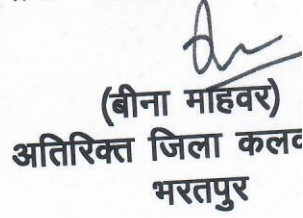 (बीना माहवर)
अतिरिक्त जिला
भरतपुर